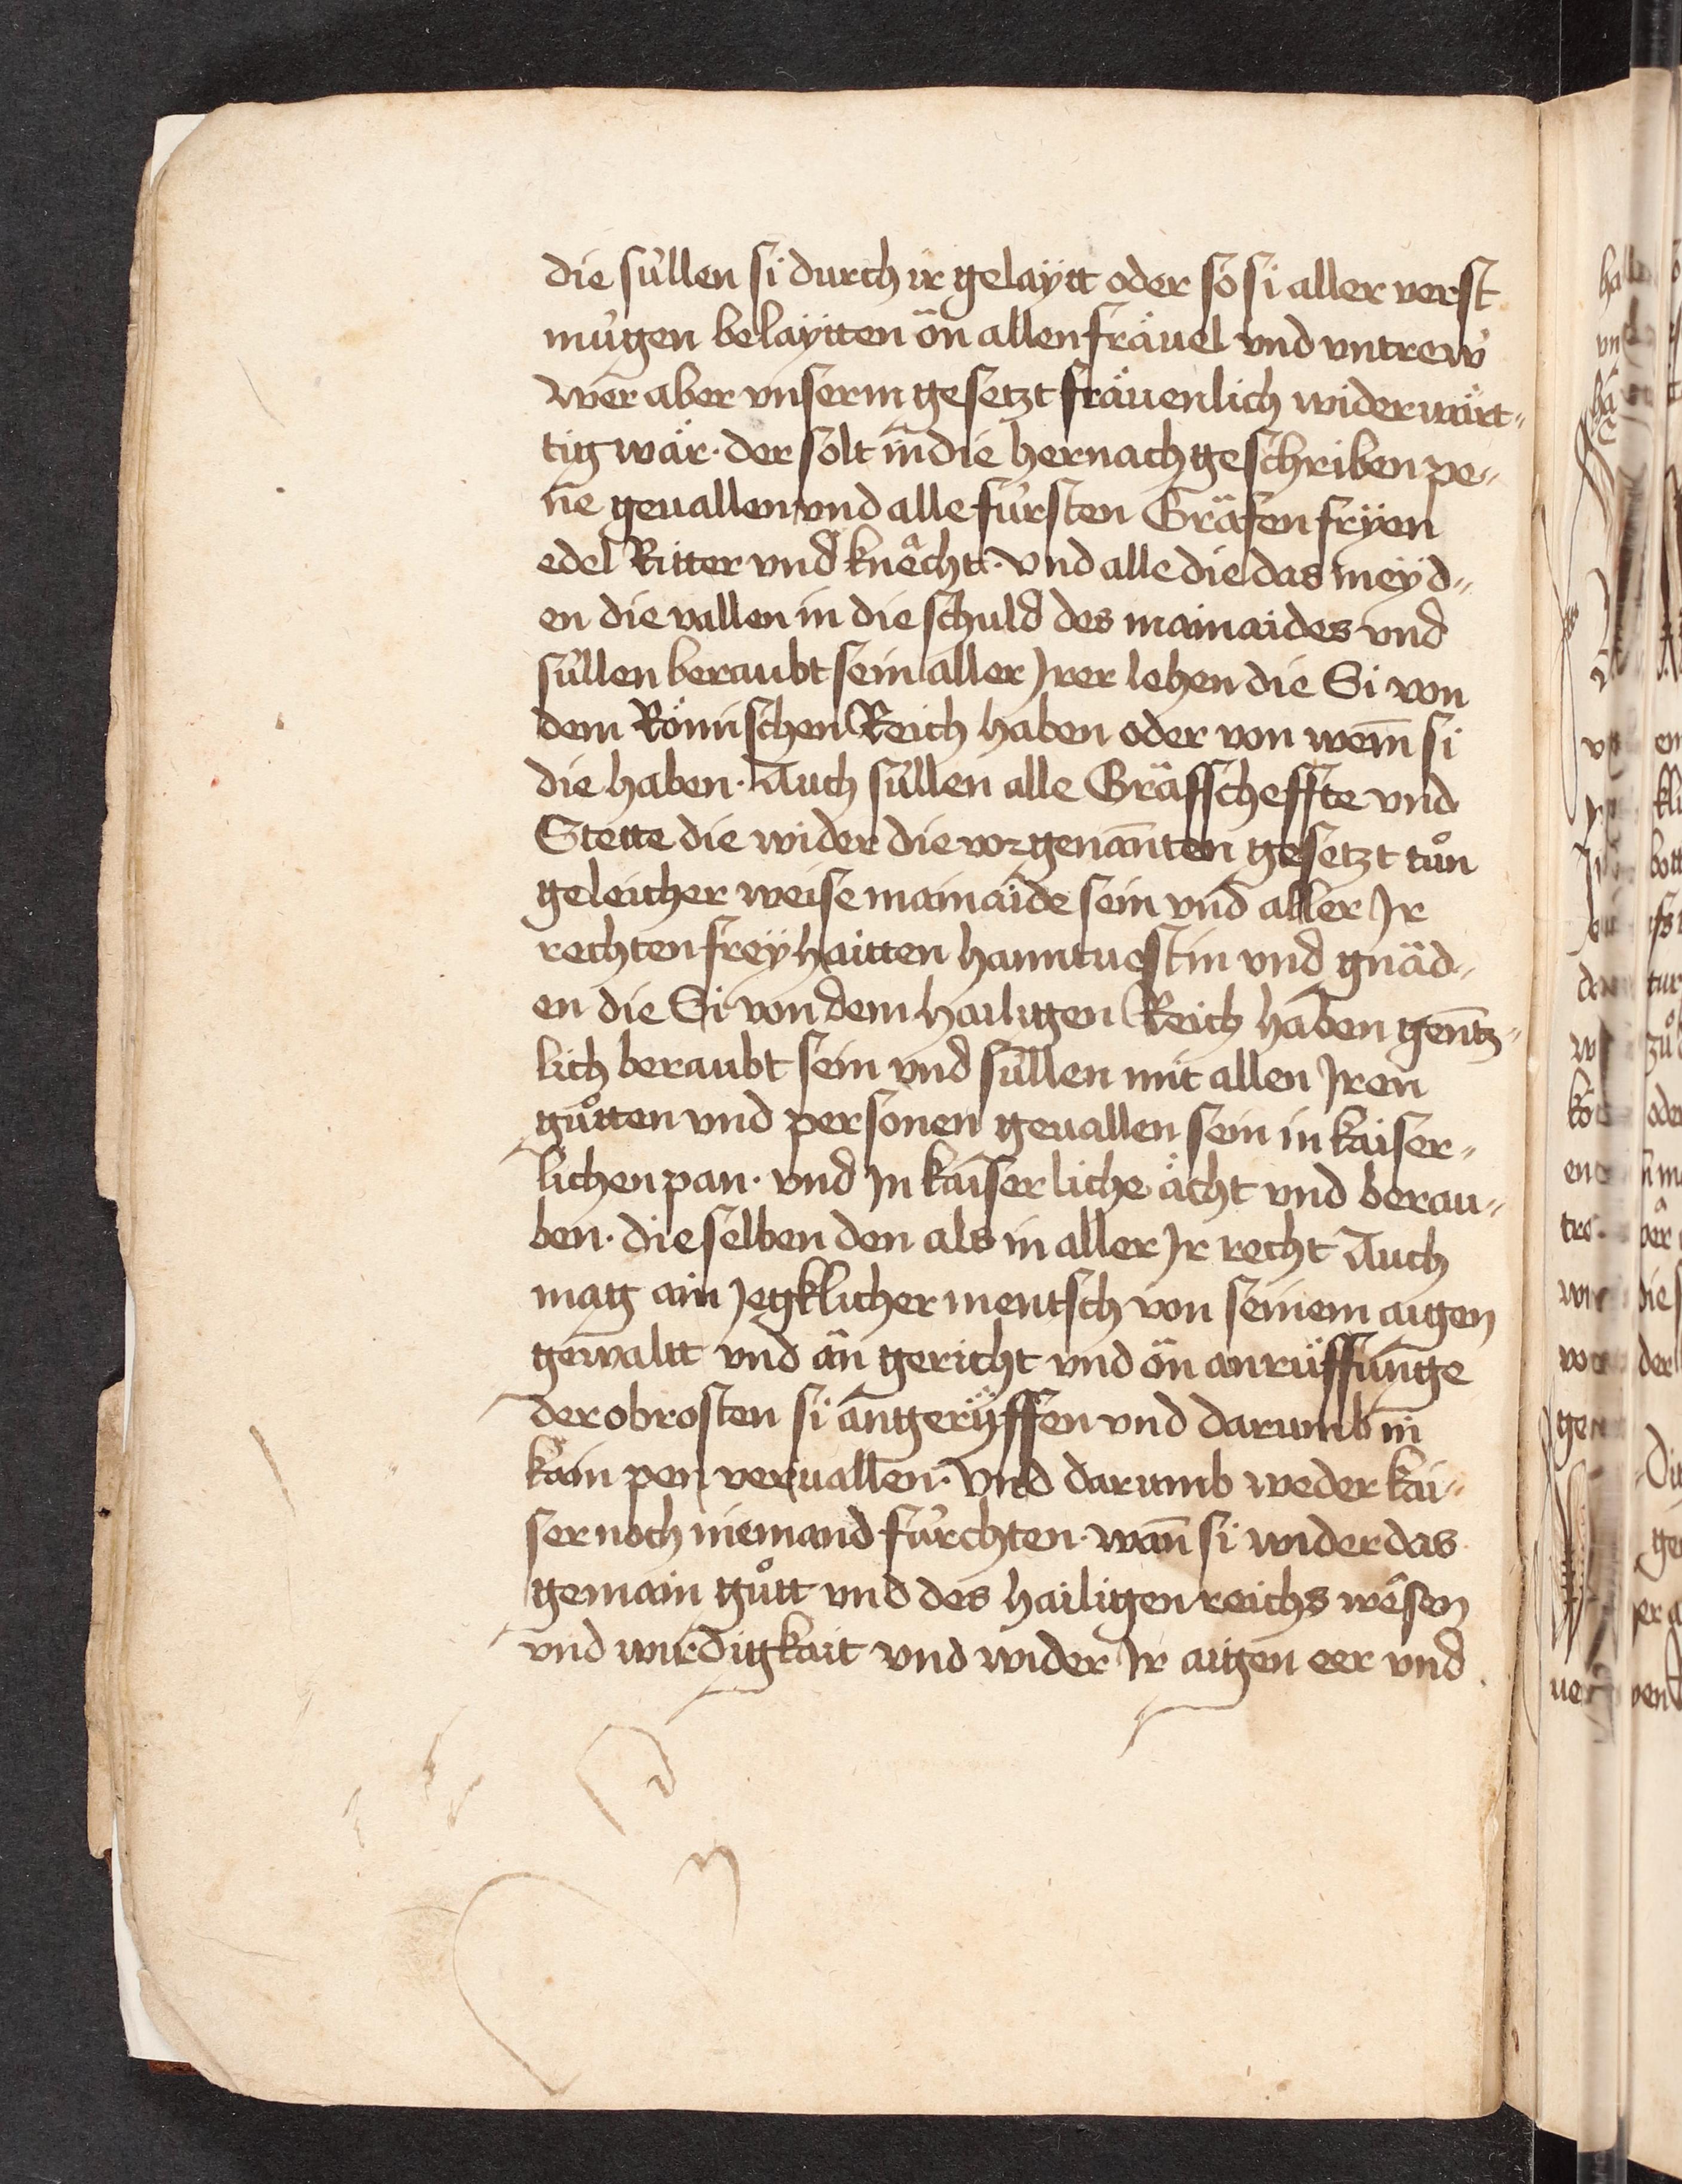 die süllen si durch ir gelaÿtt oder so si aller verst
mügen belaÿtten ôn allen fräuel vnd vntrew
wer aber vnserm gesetzt fräuenlich widerwärt„
tig wär · der solt in die hernach geschriben pe„
ne geuallen vnd alle fürsten Gräfen frÿen
edel Ritter vnd knêcht · vnd alle die das meÿd„
en die vallen in die schuld des mainaides vnd
süllen beraubt sein aller Jrer lehen die Si von
dem Römischen Reich haben oder von wem̄ si
die haben · Auch süllen alle Gräffscheffte vnd
Stette die wider die vorgenan̄ten gesetzt tůn
geleicher weise mainaide sein vnd aller Jr
rechten freÿhaitten hanntuestin vnd gnäd„
en die Si von dem hailigen Reich haben gen̄tz„
lich beraubt sein vnd süllen mit allen Jren
gůtten vnd personen geuallen sein in kaiser„
lichen pan · vnd Jn kaiserliche ächt vnd berau„
ben · die selben den als in aller Jr recht Auch
mag ain Jegklicher mentsch von seinem aigen
gewaltt vnd ân gericht vnd ôn anrüffunge
der obrosten si angerÿffen vnd darumb in
kain pen veruallen · Vnd darumb weder kai„
ser noch niemand fürchten · wan̄ si wider das
gemain gůtt vnd des hailigen reichs wêsen
vnd wirdigkait vnd wider Jr aigen eer vnd